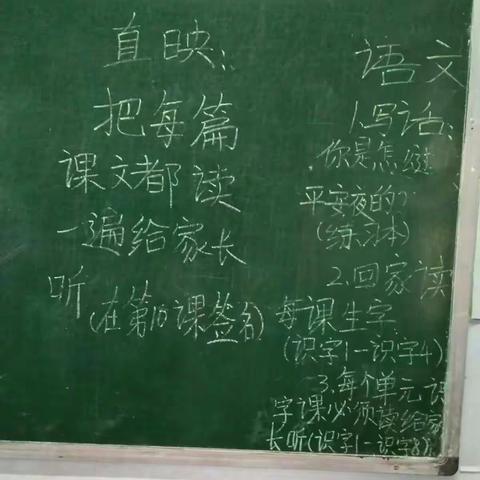 直映:
把每篇
课文都读
一遍给家长
听(在第10课签名)
语文
1.写话:
你是怎
平安夜的?
(练习本)
2.回家读
每课生字
(识字1一识字4)
3.每个单元识
字课必须读给家
长听(识字1一识字8)